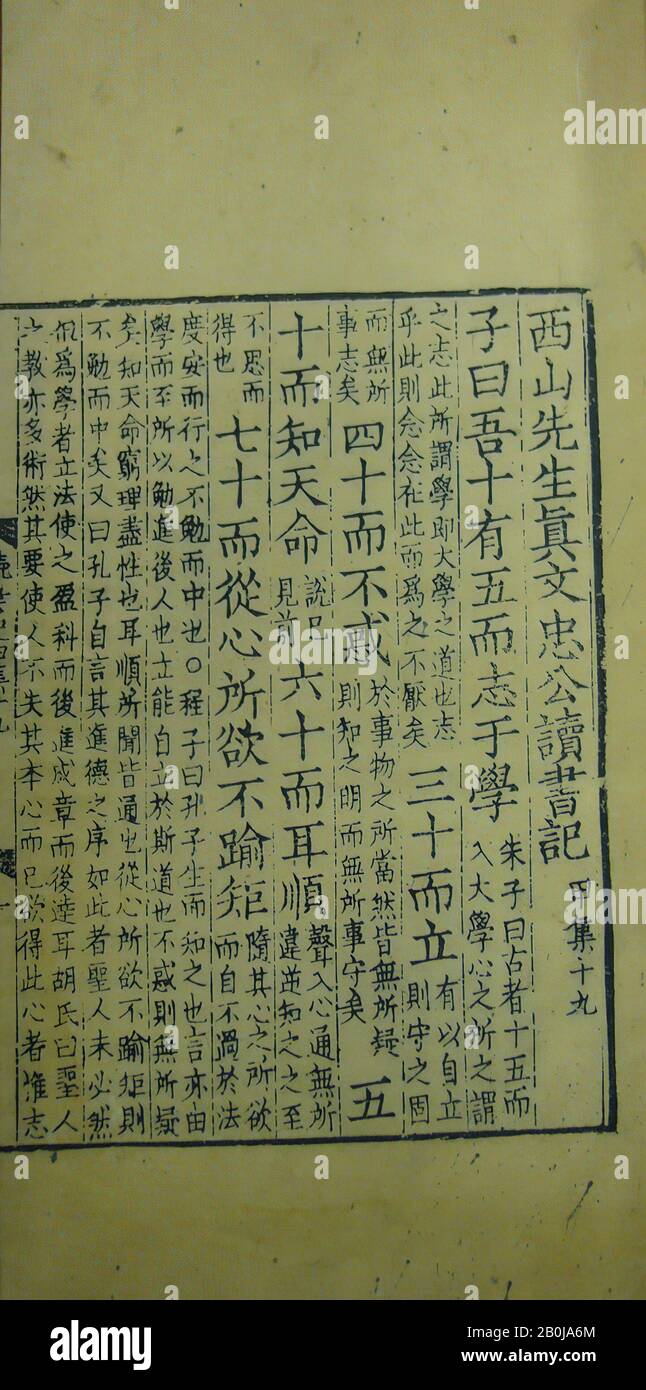 西山先生眞文忠公讀書記 甲集十九
子曰吾十有五而志于學 朱子曰古者十五而
入大學心之所之謂
之志此所謂學即大學之道也志
乎此則念念在此而爲之不厭矣 三十而立 有以自立
則守之固
而無所
事志矣 四十而不惑 於事物之所當然皆無所疑
則知之明而無所事守矣 五
十而知天命 說已
見前 六十而耳順 聲入心通無所
違逆知之之至
不思而
得也 七十而從心所欲不踰矩 隨其心之所欲
而自不過於法
度安而行之不勉而中也○程子曰孔子生而知之也言亦由
學而至所以勉進後人也立能自立於斯道也不惑則無所疑
矣知天命窮理盡性也耳順所聞皆通也從心所欲不踰矩則
不勉而中矣又曰孔子自言其進德之序如此者聖人未必然
但爲學者立法使之盈科而後進成章而後達耳胡氏曰聖人
之教亦多術然其要使人不失其本心而已欲得此心者惟志
alamy
Image ID: 2B0JA6M
www.alamy.com